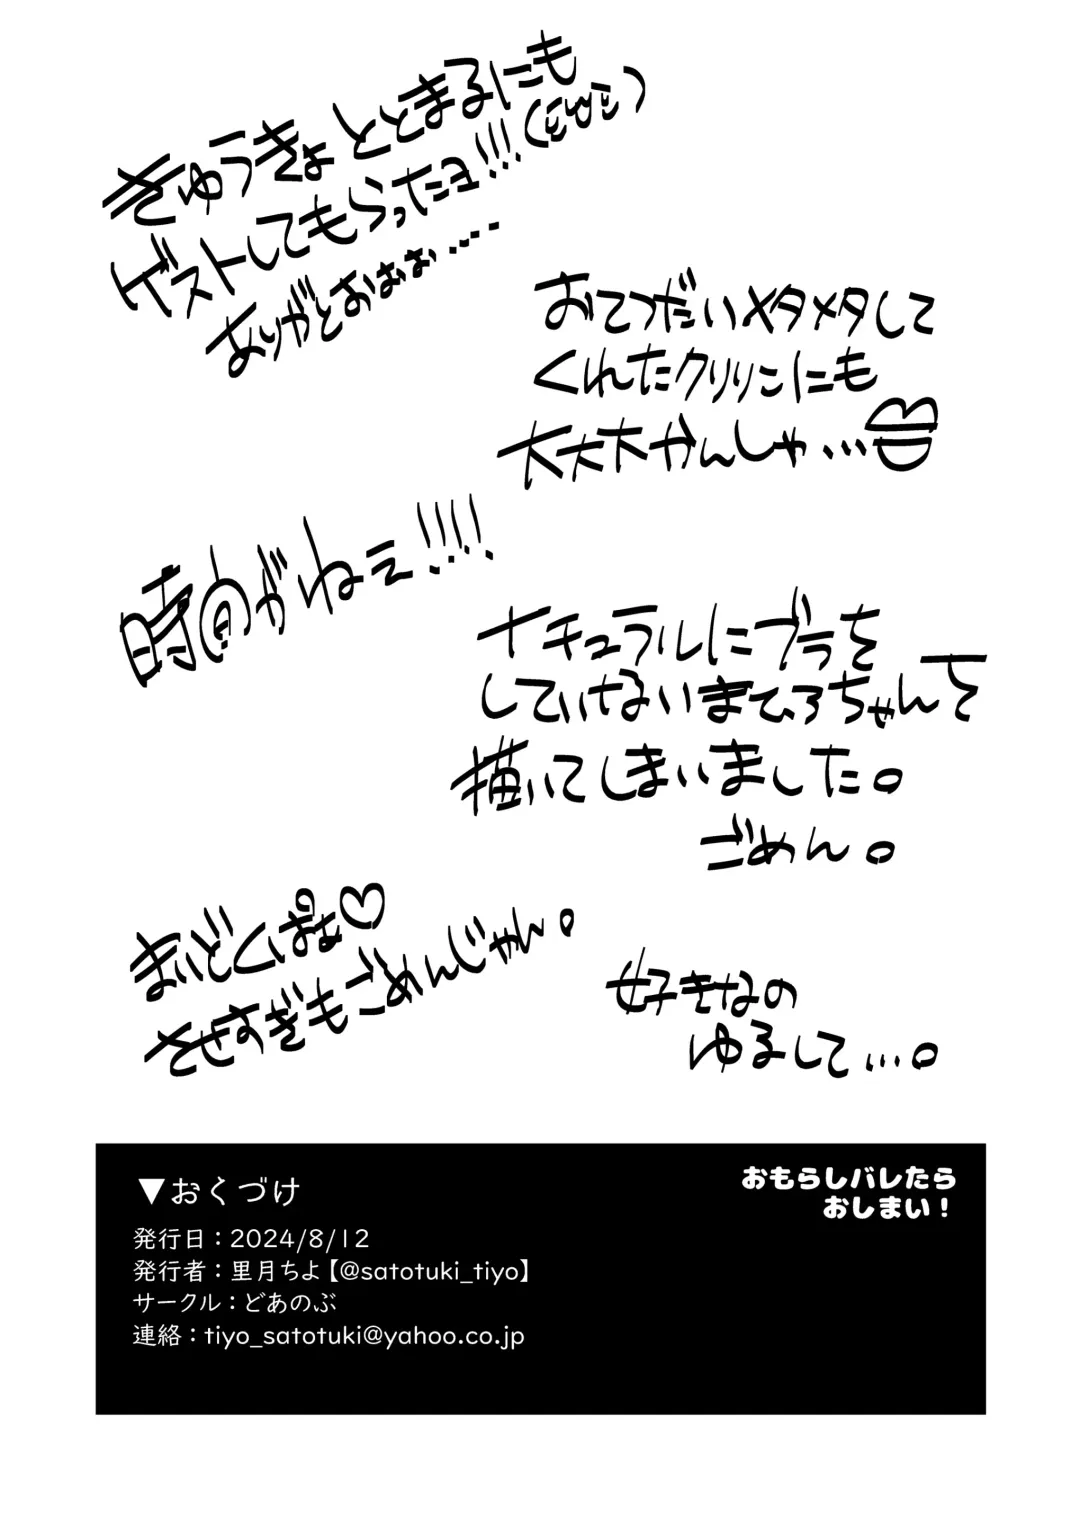 きゅうきょ ととまるにも
ゲストしてもらったヨ!!!
ありがとおぉぉ....
おてつだいメタメタして
くれたクリリンにも
大大大かんしゃ...♡
時間がねェ!!!!
ナチュラルにブラを
していけないまひろちゃんを
描いてしまいました。
ごめん。
まいどくぱぁ♡
させすぎもごめんじゃん。
好きなの
ゆるして...。
▼おくづけ
おもらしバレたら
おしまい!
発行日:2024/8/12
発行者:里月ちよ【@satotuki_tiyo】
サークル:どあのぶ
連絡:tiyo_satotuki@yahoo.co.jp